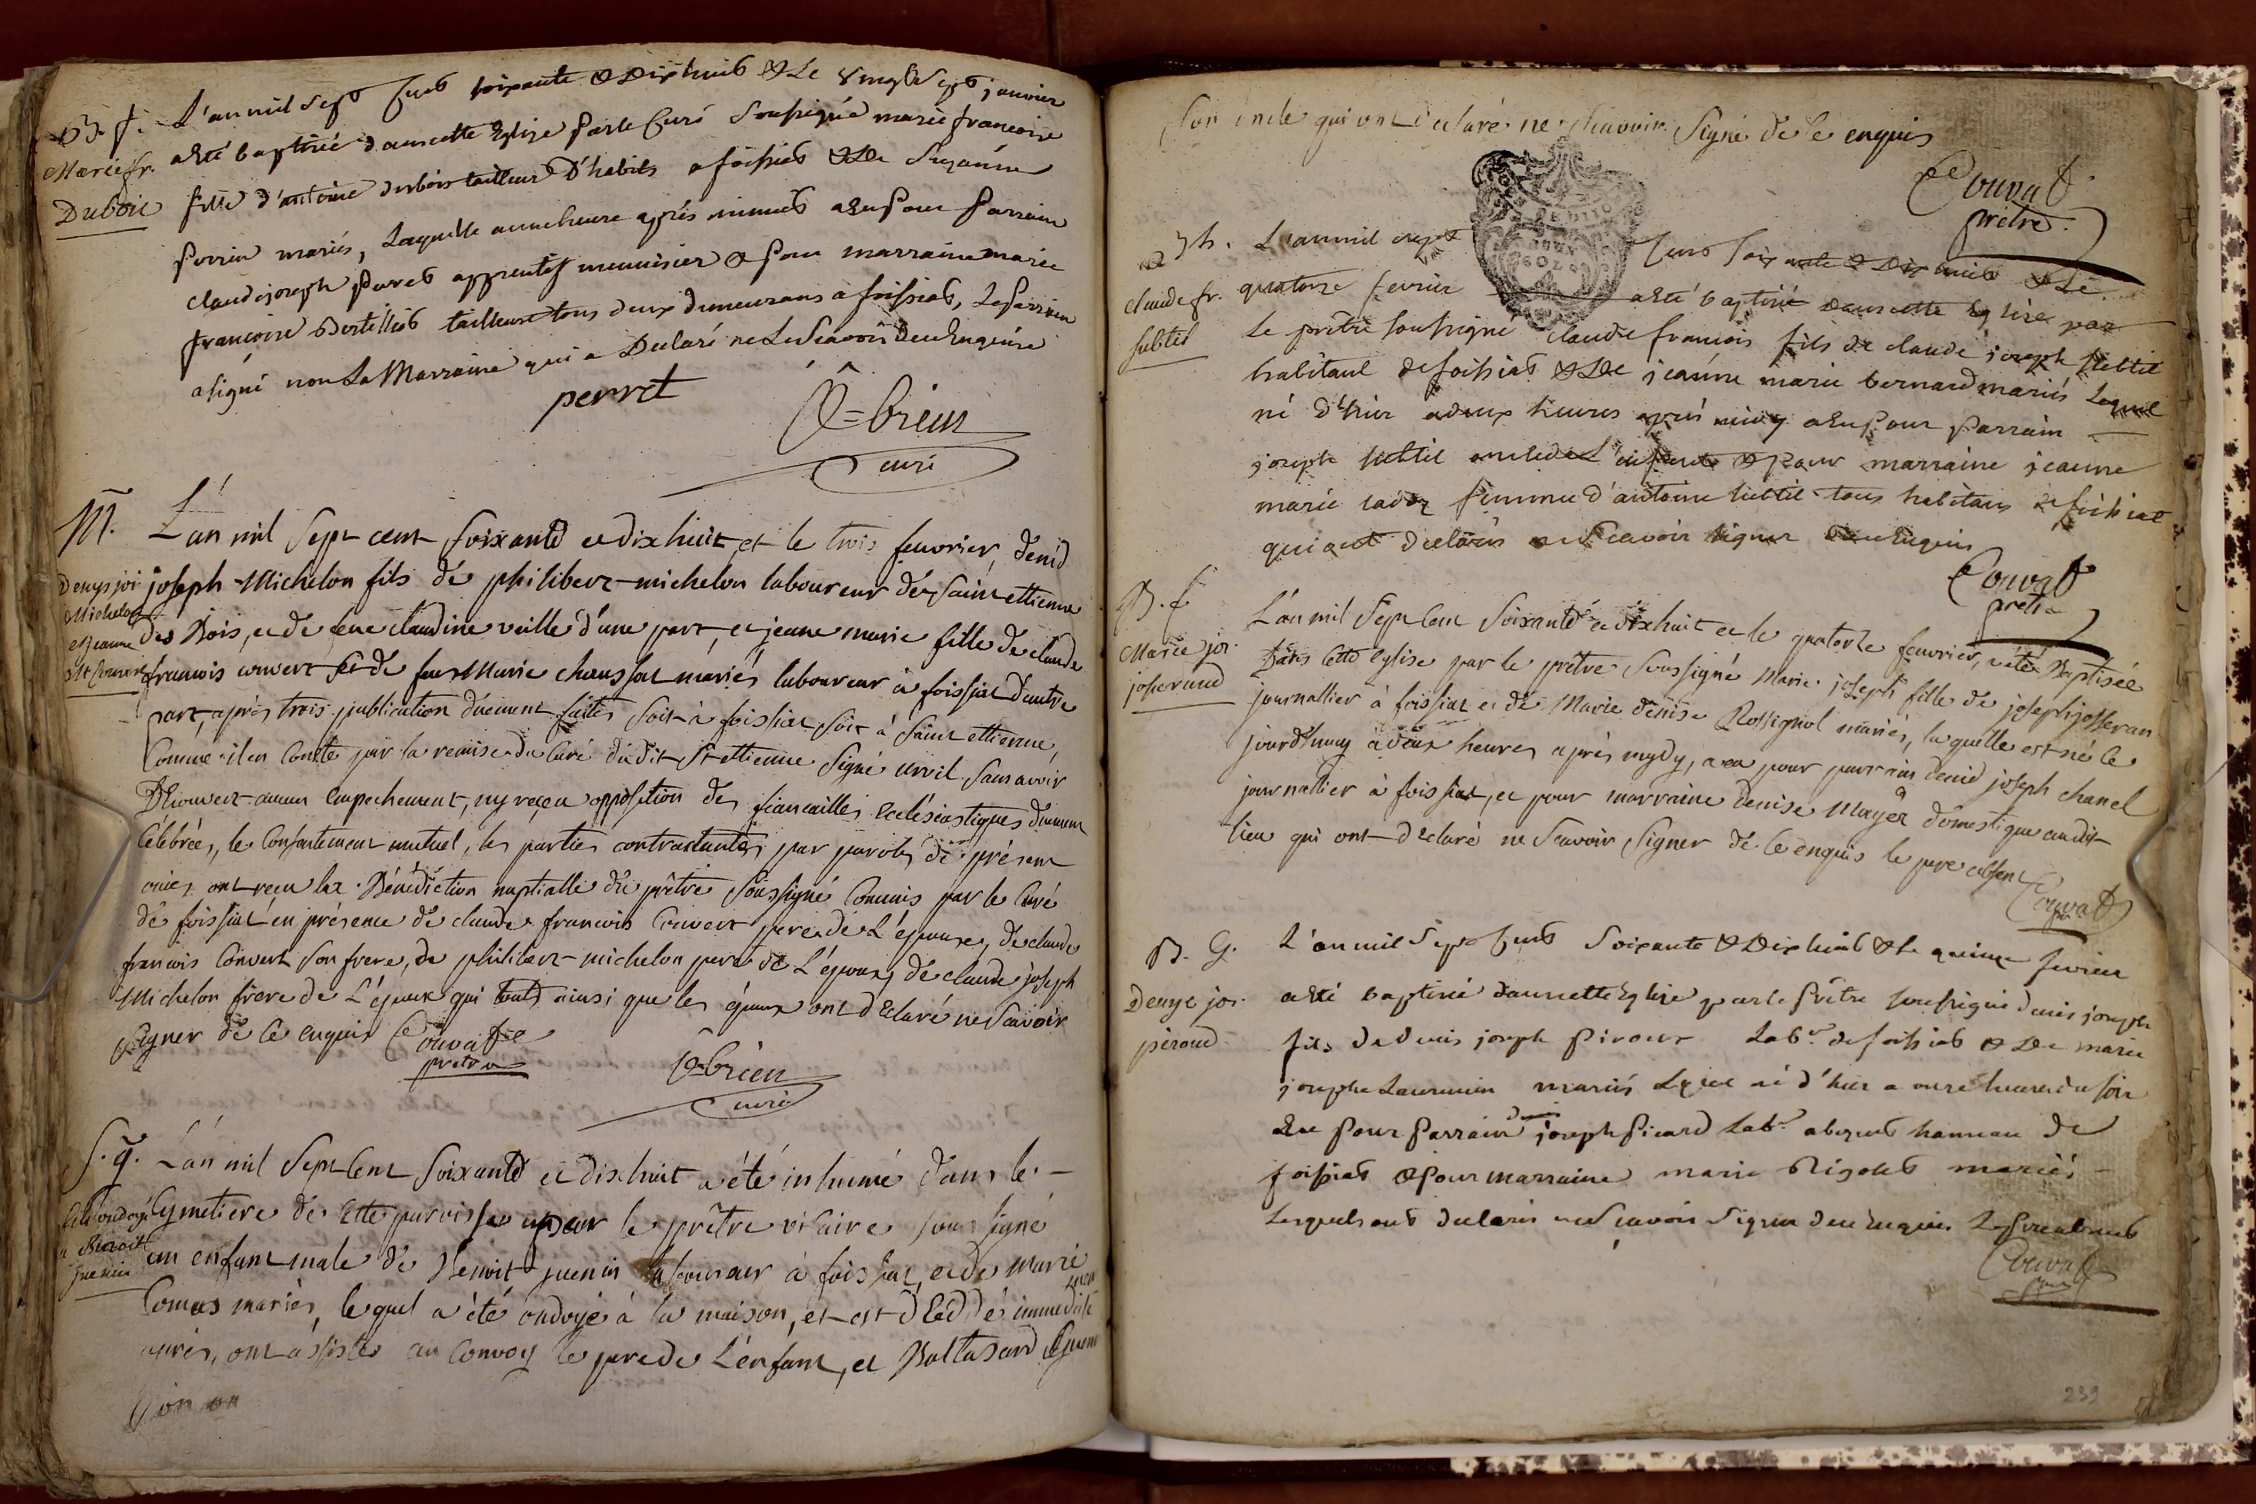 B. f. L'an mil sept cents soixante & dix huit & le vingt sept janvier
Marie fr. a été baptisée dans cette Eglise par le Curé soussigné marie francoise
Duboie fille d'antoine dubois tailleur d'habits a foissiat & de Suzanne
perrin mariés, laquelle une heure après minuit a eu pour parrain
claude joseph perret apprentif menuisier & pour marraine marie
francoise tailleuse tous deux demeurans à foissiat, le parrain
a signé non la Marraine qui a Declaré ne le scavoir de ce enquise
perret
curé
M. L'an mil sept cent soixante et dix huit et le trois feuvrier, denid
Denys joj joseph Michelon fils de philibert michelon laboureur de saint ettienne
Michelon des Bois, et de feue claudine veille d'une part, et jeane marie fille de claude
et jeanne
Convert francois convert et de feue Marie chaussat mariés laboureur à foissiat d'autre
part, après trois publication duement faites soit à foissiat soit à saint ettienne,
Comme il en Conste par la remise du Curé dudit St ettienne signé sans avoir
Découvert aucun empechement, ny reçeu opposition des fiancailles Ecclésiastiques duement
Célébrées, le Consentement mutuel, les parties contractantes par paroles de présent
ont reçeu la Bénédiction nuptialle du prêtre soussigné Commis par le Curé
de foissiat en présence de claude francois Convert pere de L'épouse, de claude
francois Convert son frere, de philibert michelon pere de L'époux, de claude joseph
Michelon frere de L'époux qui touts ainsi que les épaux ont déclaré ne scavoir
signer de ce enquis Couvat
pretre
curé
S. g. L'an mil sept Cent soixante et dix huit a été inhumé dans le
ondoyé Cymetiere de cette paroisse par le prêtre vicaire sous signé
a Benoit un enfant male de Benoit juenin laboureur à foissiat, et de Marie
juenin
Comas mariés, lequel a été ondoyé à la maison, et est décédé immediate
ment
aprés, ont assisté au Convoy le pere de L'énfant, et Baltasard
son oncle qui ont declaré ne scavoir signé de ce enquis
Couvat
prêtre
B. L'an mil sept Cents soixante & dix huit & le
claude fr. quatorze fevrier a été baptisé dans cette Eglise par
subtil le prêtre soussigné claude francois fils de claude joseph subtil
habitant de foissiat & de jeanne marie bernard mariés lequel
né d'hier a deux heures après midy a eu pour parrain
joseph subtil oncle de L'enfant & pour marraine jeanne
marie femme d'antoine subtil tous habitans de foissiat
qui ont declarés ne scavoir signer de ce enquis
Couvat
pretre
B. f. L'an mil sept Cent soixante et dix huit et le quatorze feuvrier, a été Baptisée
Marie jos. Dans cette Eglise par le prêtre soussigné Marie joseph fille de joseph josseran
joserand journallier à foissiat et de Marie denise Rossignol mariés, laquelle est né ce
jourd'huuy à deux heures après mydy, a eu pour parrain denid joseph chanel
journallier à foissiat, et pour marraine denise Mayer domestique audit
lieu qui ont déclaré ne scavoir signer de ce enquis le pere absent
Couvat
B. G. L'an mil sept Cents soixante & dix huit & le quinze fevrier
Denye jos. a été baptisé dans cette Eglise par le prêtre soussigné denis joseph
piroud fils de denis joseph piroux Labr. de foissiat & de marie
josephe mariés lequel né d'hier a onze heures du soir
a Eu pour parrain denis joseph picard Labr. hameau de
foissiat & pour marraine marie Rigolet mariés
Lesquels ont declarés ne scavoir signer de ce enquis
Couvat
239